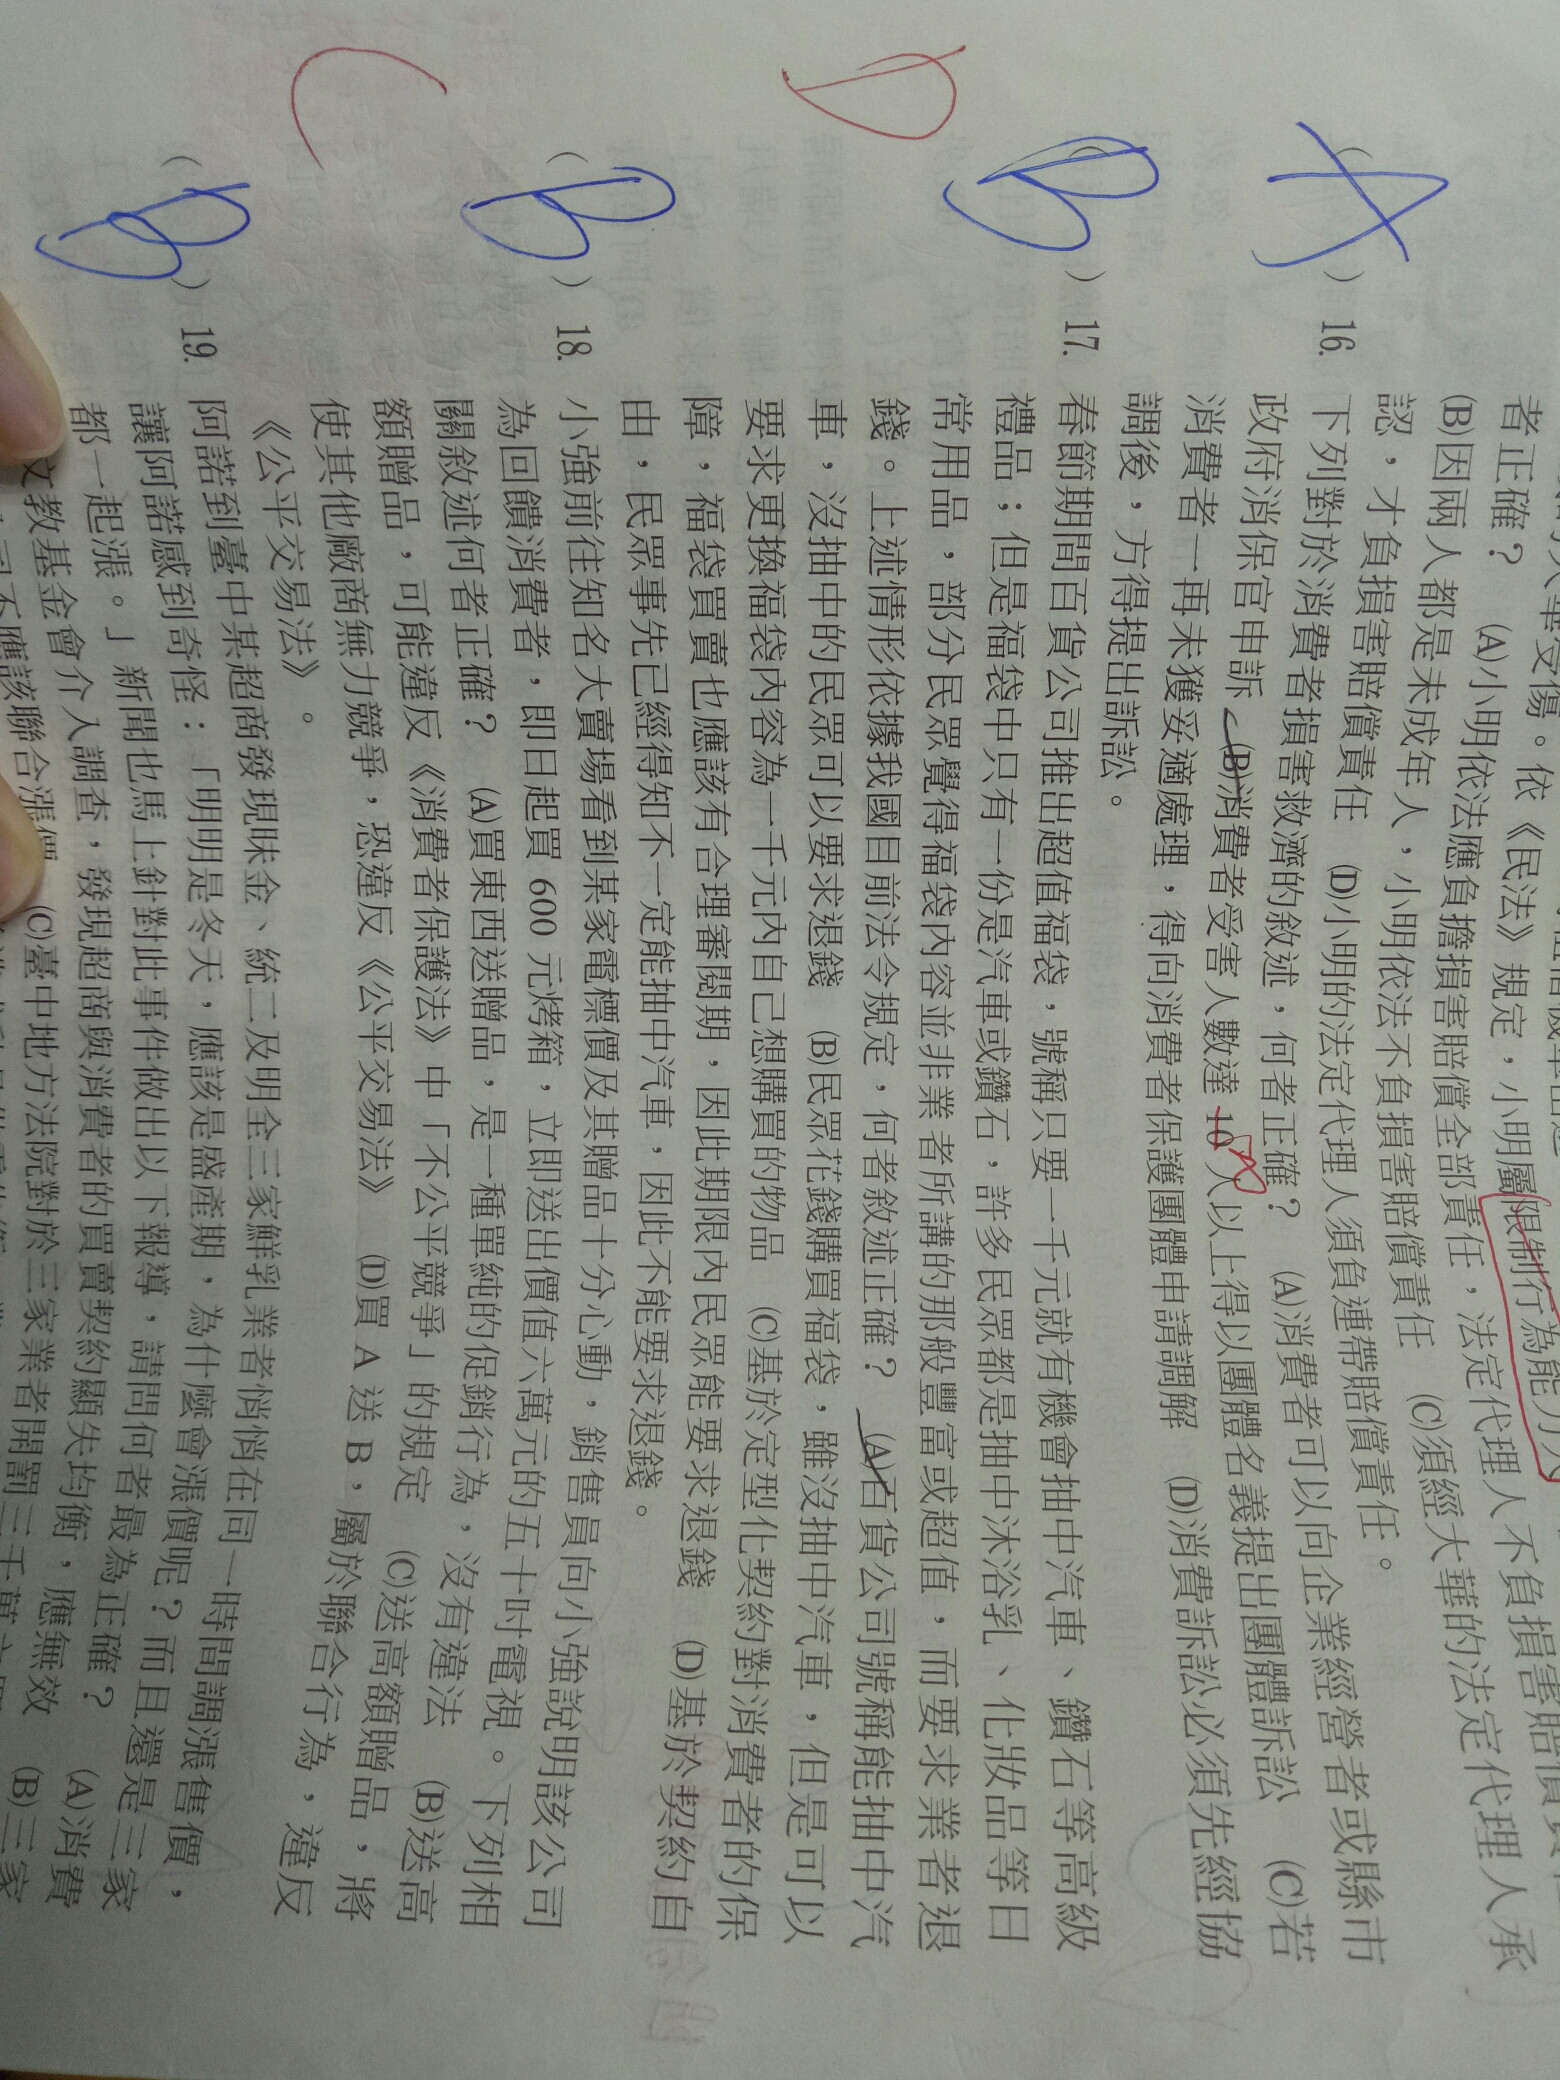 者正確？　(A)小明依法應負擔損害賠償全部責任，法定代理人不負損害賠償責
(B)因兩人都是未成年人，小明依法不負損害賠償責任　(C)須經大華的法定代理人承
認，才負損害賠償責任　(D)小明的法定代理人須負連帶賠償責任。
A
( ) 16. 下列對於消費者損害救濟的敘述，何者正確？　(A)消費者可以向企業經營者或縣市
政府消保官申訴　(B)消費者受害人數達 10 人以上得以團體名義提出團體訴訟　(C)若
消費者一再未獲妥適處理，得向消費者保護團體申請調解　(D)消費訴訟必須先經協
調後，方得提出訴訟。
D
B
( ) 17. 春節期間百貨公司推出超值福袋，號稱只要一千元就有機會抽中汽車、鑽石等高級
禮品；但是福袋中只有一份是汽車或鑽石，許多民眾都是抽中沐浴乳、化妝品等日
常用品，部分民眾覺得福袋內容並非業者所講的那般豐富或超值，而要求業者退
錢。上述情形依據我國目前法令規定，何者敘述正確？　(A)百貨公司號稱能抽中汽
車，沒抽中的民眾可以要求退錢　(B)民眾花錢購買福袋，雖沒抽中汽車，但是可以
要求更換福袋內容為一千元內自己想購買的物品　(C)基於定型化契約對消費者的保
障，福袋買賣也應該有合理審閱期，因此期限內民眾能要求退錢　(D)基於契約自
由，民眾事先已經得知不一定能抽中汽車，因此不能要求退錢。
C
B
( ) 18. 小強前往知名大賣場看到某家電標價及其贈品十分心動，銷售員向小強說明該公司
為回饋消費者，即日起買 600 元烤箱，立即送出價值六萬元的五十吋電視。下列相
關敘述何者正確？　(A)買東西送贈品，是一種單純的促銷行為，沒有違法　(B)送高
額贈品，可能違反《消費者保護法》中「不公平競爭」的規定　(C)送高額贈品，將
使其他廠商無力競爭，恐違反《公平交易法》　(D)買 A 送 B，屬於聯合行為，違反
《公平交易法》。
B
( ) 19. 阿諾到臺中某超商發現味金、統二及明全三家鮮乳業者悄悄在同一時間調漲售價，
讓阿諾感到奇怪：「明明是冬天，應該是盛產期，為什麼會漲價呢？而且還是三家
都一起漲。」新聞也馬上針對此事件做出以下報導，請問何者最為正確？　(A)消費
文教基金會介入調查，發現超商與消費者的買賣契約顯失均衡，應無效　(B)三家
不應該聯合漲價　(C)臺中地方法院對於三家業者開罰三千萬